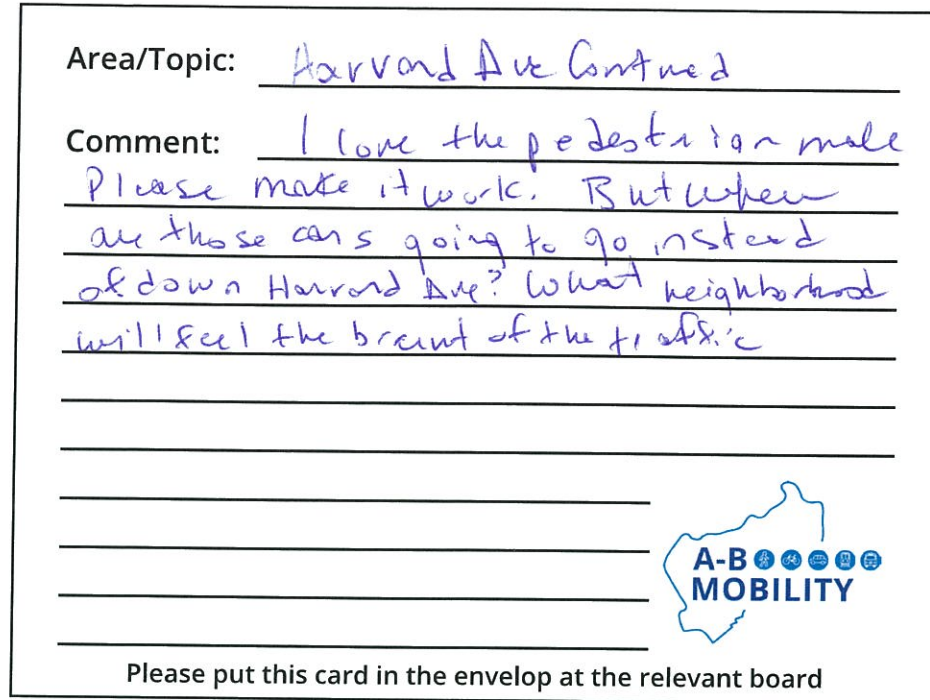 Area/Topic: Harvard Ave Contined
Comment: I love the pedestrian mall
Please make it work. But where
are those cars going to go instead
of down Harvard Ave? What neighborhood
will feel the breunt of the traffic
A-B
MOBILITY
Please put this card in the envelop at the relevant board